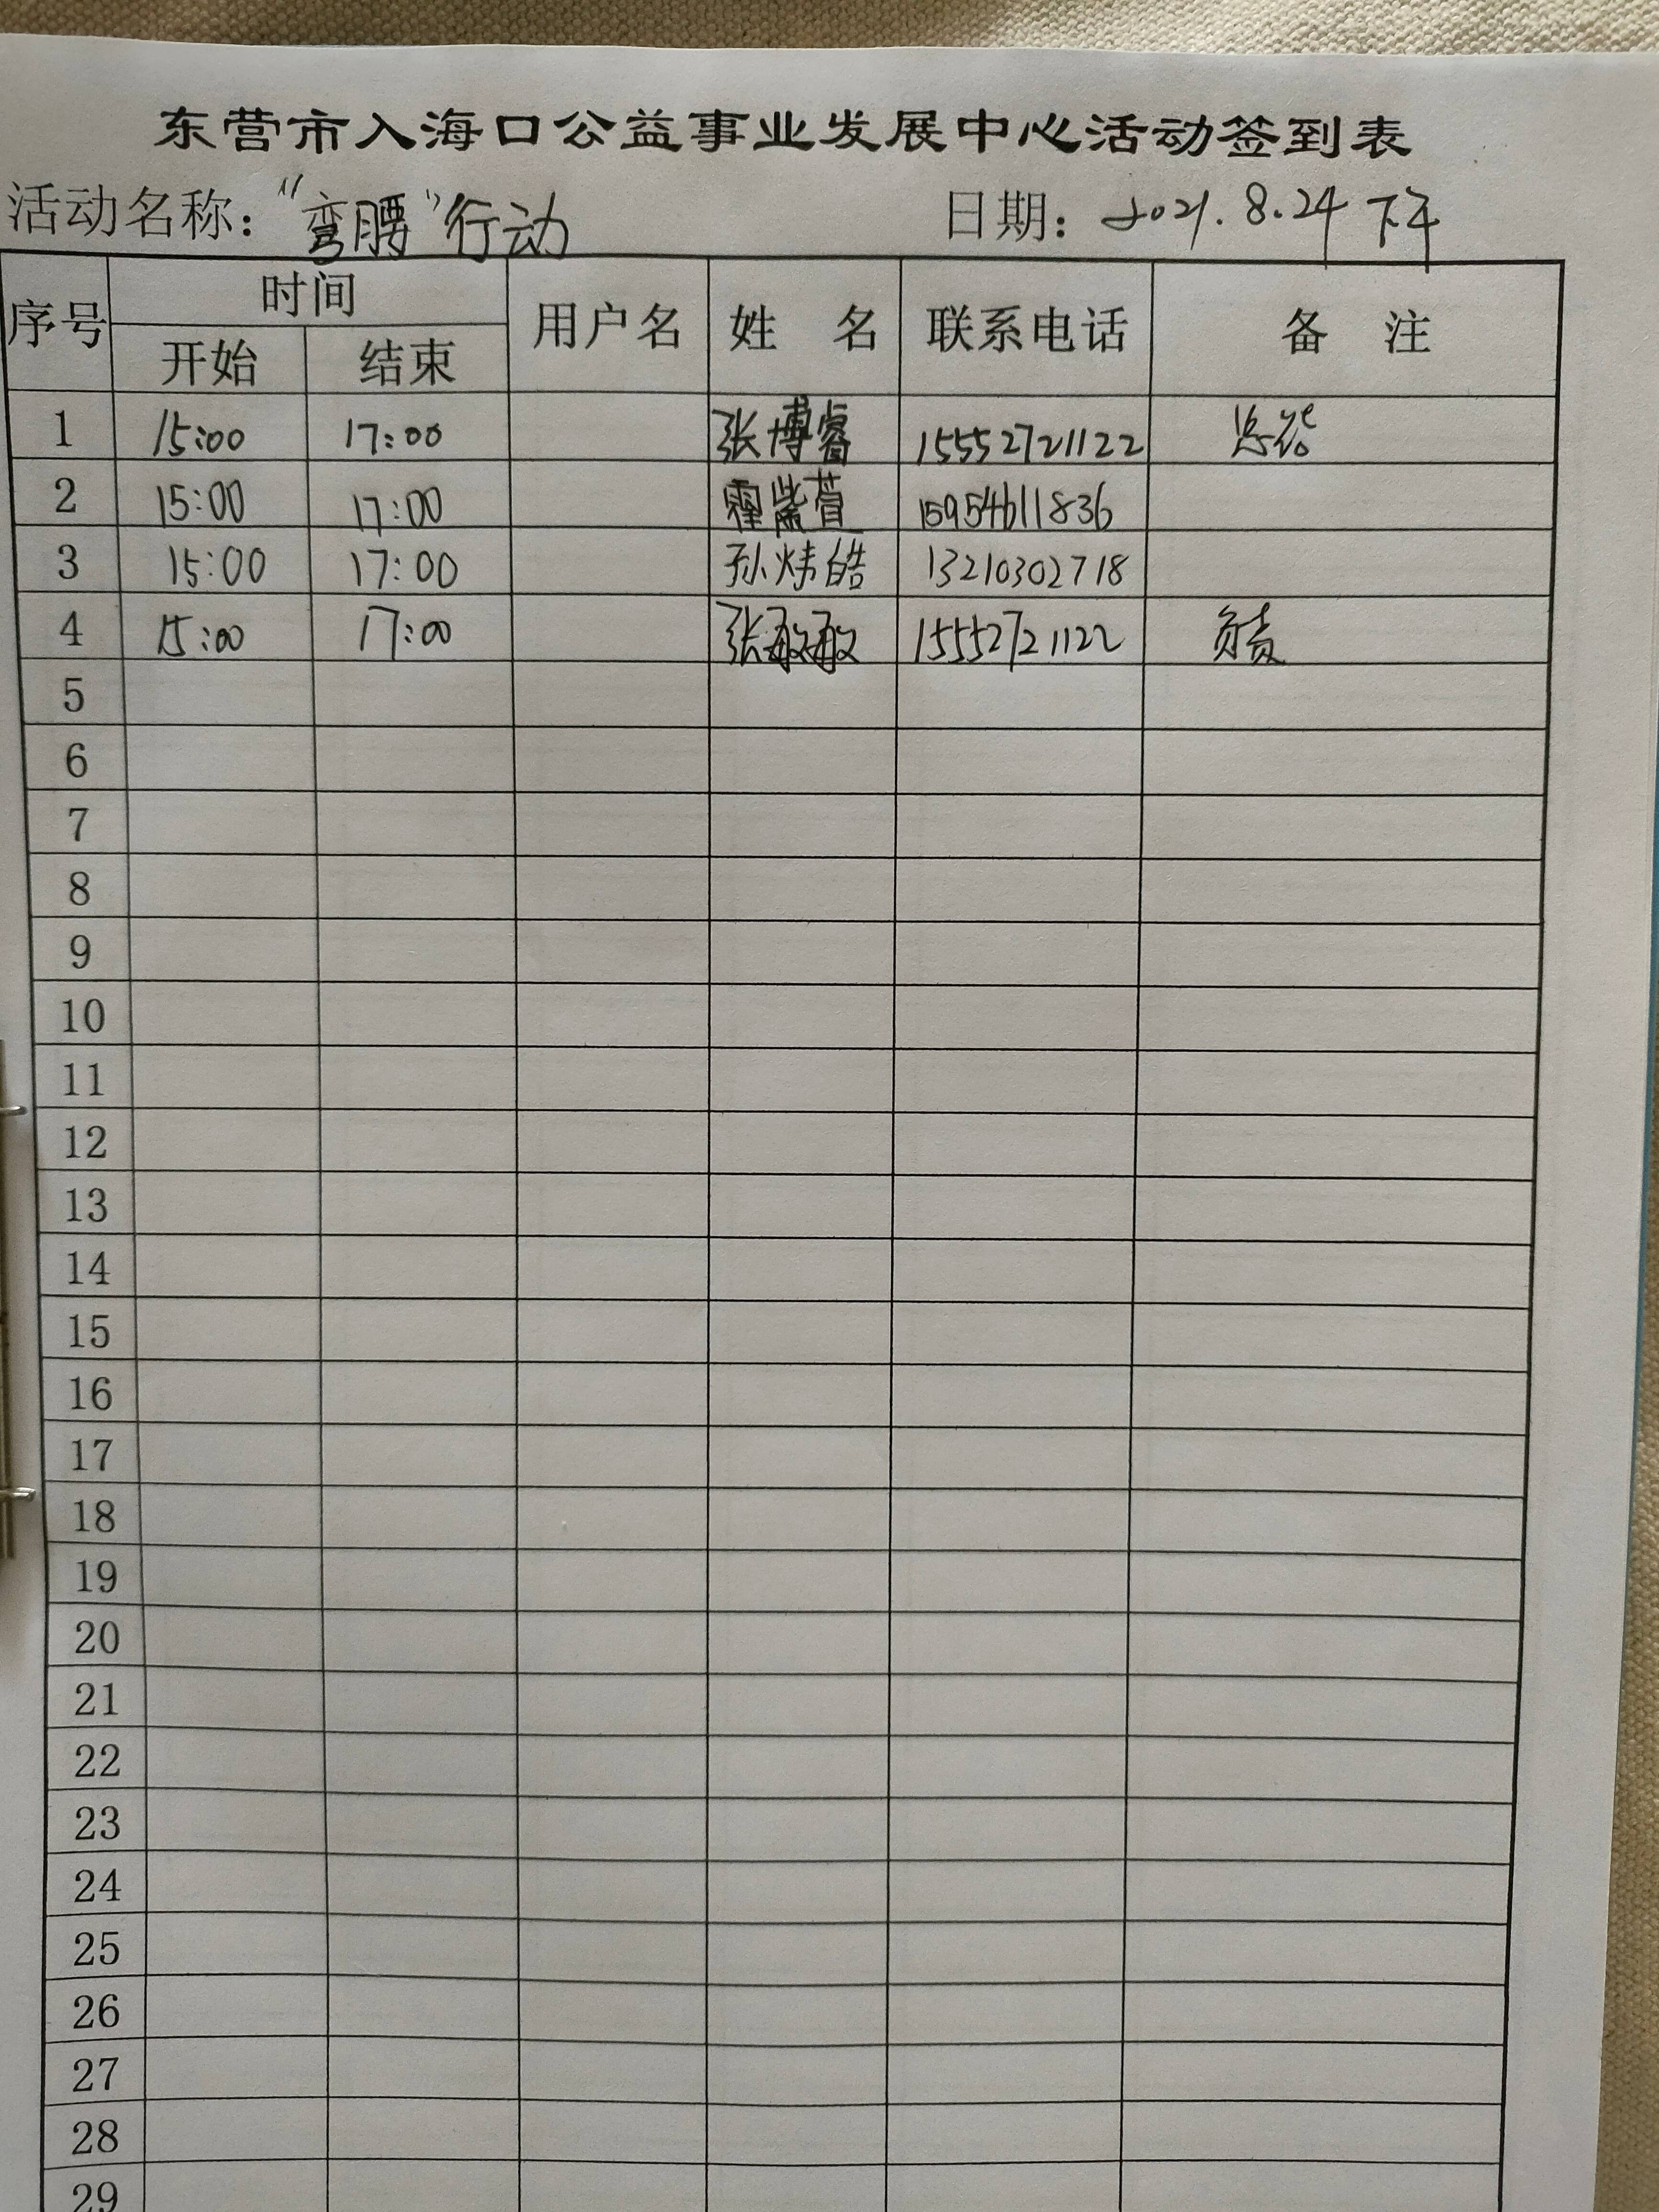 东营市入海口公益事业发展中心活动签到表
活动名称：“弯腰”行动 日期：2021.8.24 下午
序号 时间 用户名 姓 名 联系电话 备 注
开始 结束
1 15:00 17:00 张博睿 15552721122 总结
2 15:00 17:00 霍紫萱 15954611836
3 15:00 17:00 孙炜皓 13210302718
4 15:00 17:00 张敏敏 15552721122 负责
5
6
7
8
9
10
11
12
13
14
15
16
17
18
19
20
21
22
23
24
25
26
27
28
29